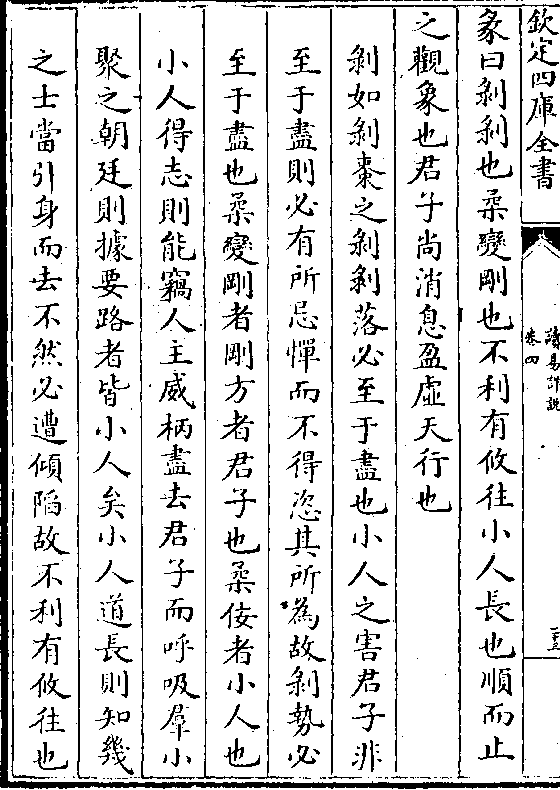 欽定四庫全書
讀易詳說
卷四
彖曰剝剝也柔變剛也不利有攸往小人長也順而止
之觀象也君子尚消息盈虛天行也
剝如剝棗之剝剝落必至于盡也小人之害君子非
至于盡則必有所忌憚而不得恣其所為故剝勢必
至于盡也柔變剛者剛方者君子也柔佞者小人也
小人得志則能竊人主威柄盡去君子而呼吸羣小
聚之朝廷則據要路者皆小人矣小人道長則知幾
之士當引身而去不然必遭傾陷故不利有攸往也